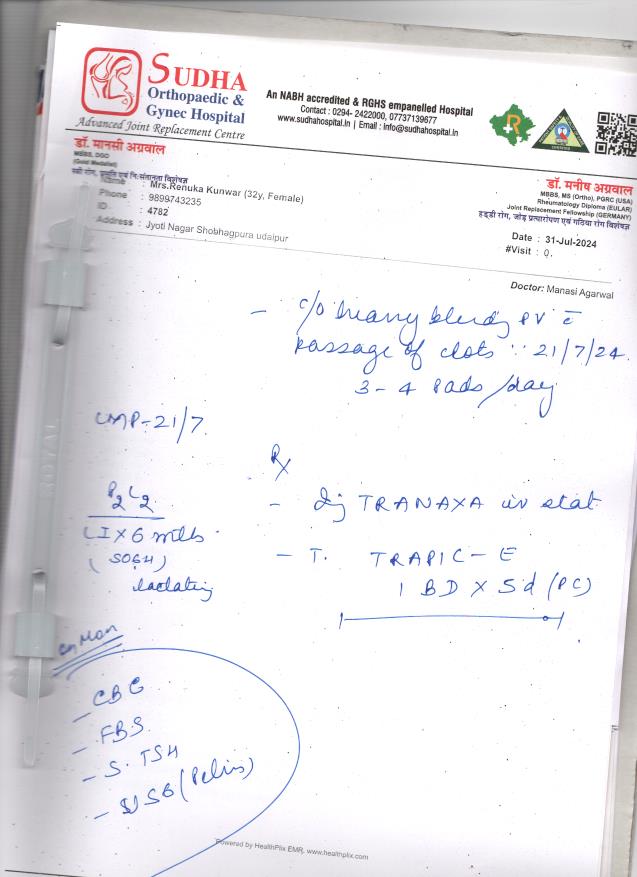 SUDHA
Orthopaedic &
Gynec Hospital
Advanced Joint Replacement Centre
An NABH accredited & RGHS empanelled Hospital
Contact : 0294- 2422000, 07737139677
www.sudhahospital.in | Email : info@sudhahospital.in
डॉ. मानसी अग्रवाल
MBBS, DGO
(Gold Medalist)
स्त्री रोग, प्रसूति एवं निःसंतानता विशेषज्ञ
डॉ. मनीष अग्रवाल
MBBS, MS (Ortho), PGRC (USA)
Rheumatology Diploma (EULAR)
Joint Replacement Fellowship (GERMANY)
हड्डी रोग, जोड़ प्रत्यारोपण एवं गठिया रोग विशेषज्ञ
Name : Mrs.Renuka Kunwar (32y, Female)
Phone : 9899743235
ID : 4782
Address : Jyoti Nagar Shobhagpura udaipur
Date : 31-Jul-2024
#Visit : 0.
Doctor: Manasi Agarwal
- c/o heavy bleeding PV c̄
passage of clots ∵ 21/7/24.
3-4 Pads/day
LMP-21/7.
Rx
P2L2
- Inj TRANAXA iv stat
LI X 6 mths
- T. TRAPIC-E
lactating
1 BD X 5d (PC)
- CBC
- FBS
- S. TSH
- USG (Pelvis)
Powered by HealthPlix EMR. www.healthplix.com